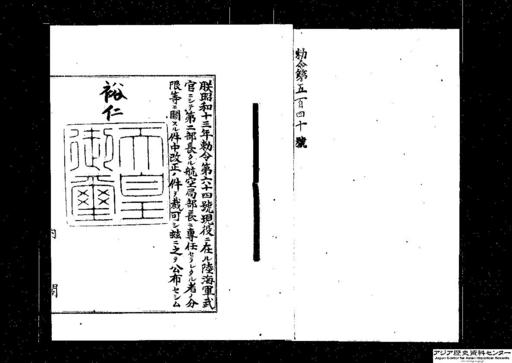 勅令第五百四十號
朕昭和十三年勅令第六十四號現役ニ在ル陸海軍武
官ニシテ第二部長タル航空局部長ニ專任セラレタル者ノ分
限等ニ關スル件中改正ノ件ヲ裁可シ玆ニ之ヲ公布セシム
裕仁
天皇
御璽
内閣
アジア歴史資料センター
Japan Center for Asian Historical Records